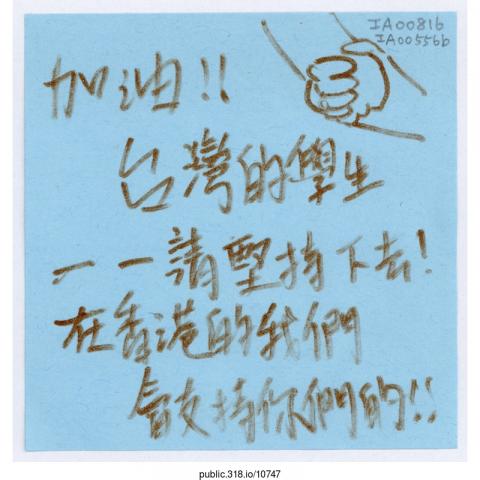 IA00816
IA00556b
加油!!
台灣的學生
——請堅持下去!
在香港的我們
會支持你們的!!
public.318.io/10747